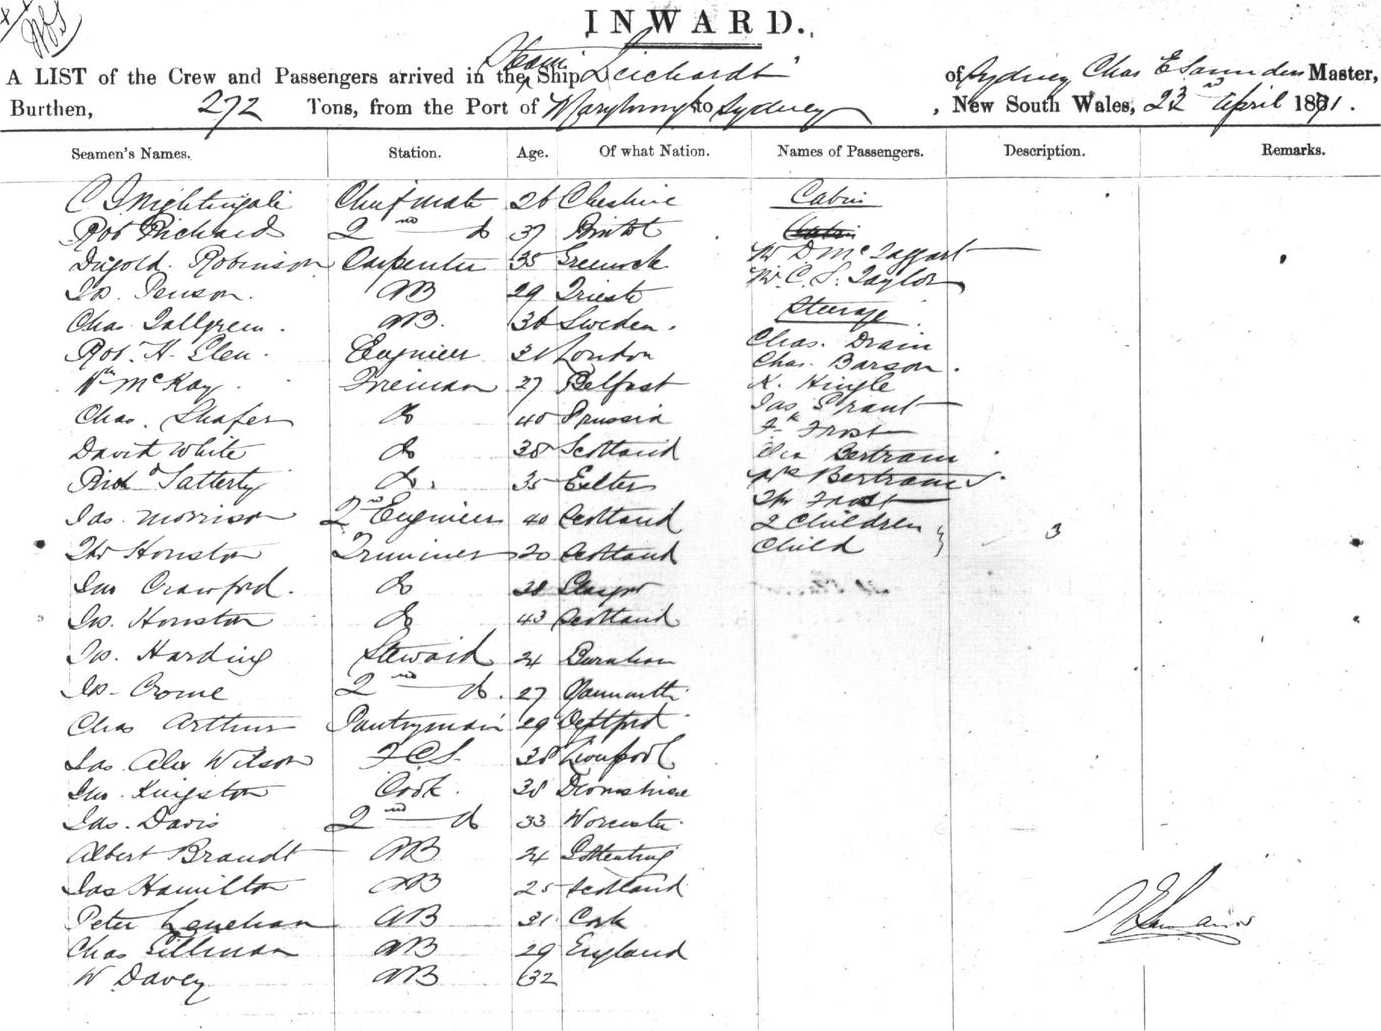 INWARD.
A LIST of the Crew and Passengers arrived in the Steam Ship Leichardt of Sydney Chas E Saunders Master,
Burthen, 272 Tons, from the Port of Maryborough to Sydney, New South Wales, 22nd April 1871.
Seamen's Names. Station. Age. Of what Nation. Names of Passengers. Description. Remarks.
C J Nightingale Chief mate 26 Cheshire Cabin
Robt Richards 2nd do 37 Bristol
Dugold Robinson Carpenter 35 Greenock Mr D McTaggart
Jas. Penson. AB 29 Trieste Mr. C. S. Taylor
Chas Tallgreen. AB. 36 Sweden. Steerage
Robt. H. Glen. Engineer 31 London Chas. Drain
Wm McKay. Fireman 27 Belfast Chas. Barson.
K. Hingle
Chas. Shafer do 40 Prussia Jas Grant
Fk Frost
David White do 38 Scotland Bertram
Do. 35 Exeter Mrs Bertram
Jas. Morrison 2nd Engineer 40 Scotland Frost
2 Children
Thos Houston Trimmer 20 Scotland Child 3
Jno Crawford. do 28 Glasgow
Jno. Houston do 43 Scotland
Jas. Harding Steward 24 Burnham
Js. Crome 2nd do. 27 Yarmouth
Chas Arthur Pantryman 29 Deptford
Jas. Alex Wilson F.C.S. 38 Liverpool
Jno. Kingston Cook. 38 Devonshire
Jas. Davis 2nd do 33 Worcester
Albert Brandt AB 24 Gothenburg
Jas Hamilton AB 25 Scotland
Peter Lenehan AB 31 Cork
Chas Gillman AB 29 England
W Davey AB 32